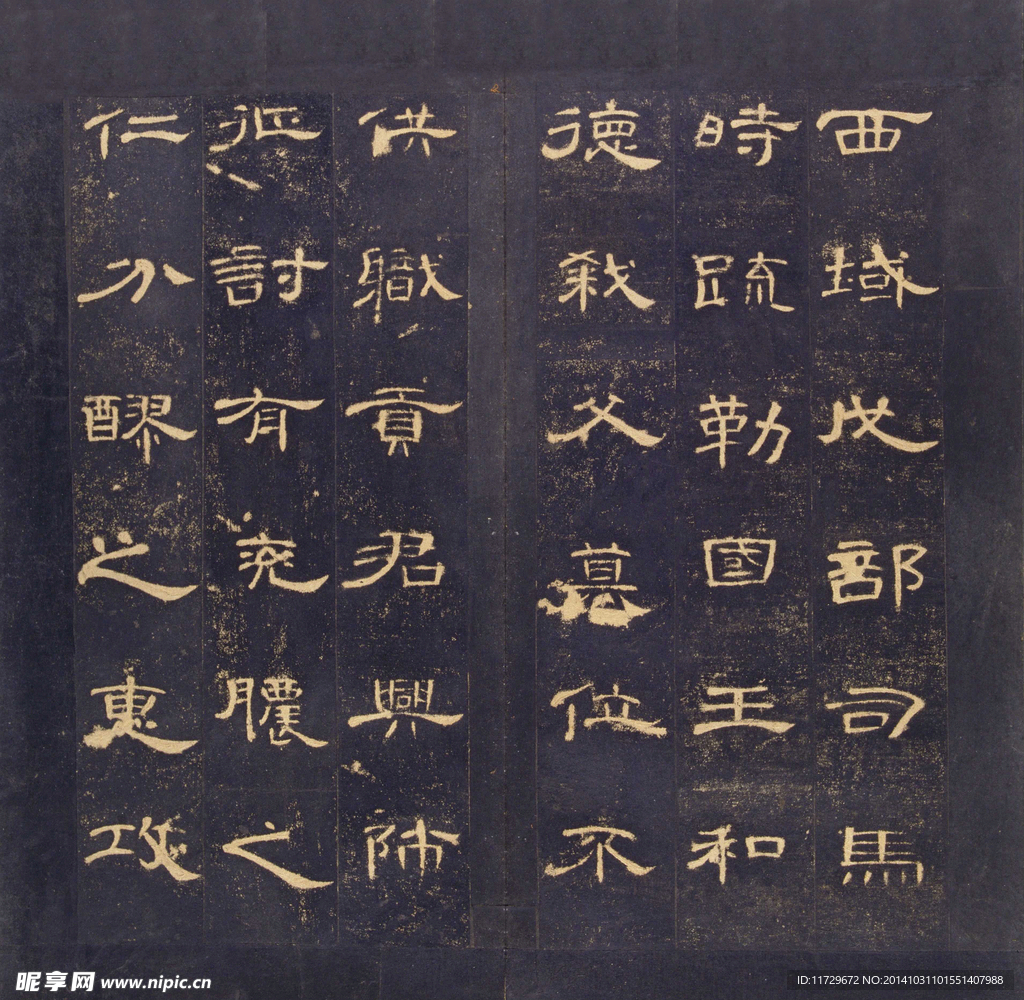 西域戊部司馬
時疏勒國王和
德弑父篡位不
供職貢君興師
征討有兗膿之
仁分醪之惠攻
昵享网 www.nipic.cn
ID:11729672 NO:20141031101551407988